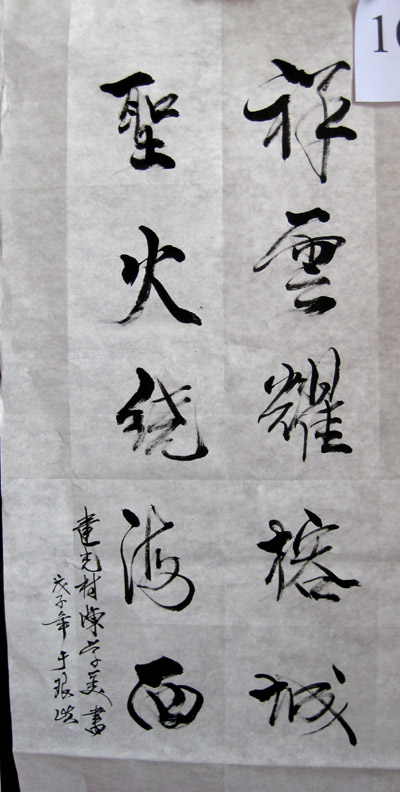 祥雲耀榕城
聖火繞海西
建光村陳学美書
戊子年于琅岐
10